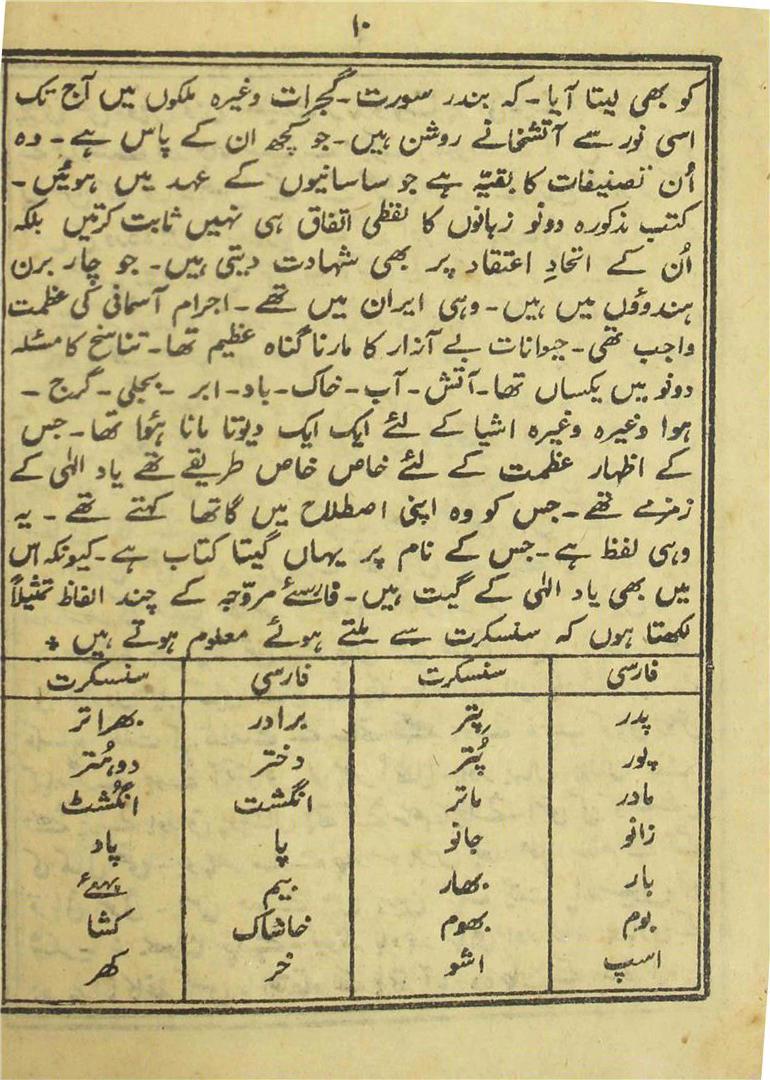 ۱۰
کو بھی لیتا آیا۔ کہ بندر سورت۔ گجرات وغیرہ ملکوں میں آج تک
اسی نور سے آتشخانے روشن ہیں۔ جو کچھ ان کے پاس ہے۔ وہ
اُن تصنیفات کا بقیّہ ہے جو ساسانیوں کے عہد میں ہوئیں۔
کتب مذکورہ دونو زبانوں کا لفظی اتفاق ہی نہیں ثابت کرتیں بلکہ
اُن کے اتحادِ اعتقاد پر بھی شہادت دیتی ہیں۔ جو چار برن
ہندوؤں میں ہیں۔ وہی ایران میں تھے۔ اجرام آسمانی کی عظمت
واجب تھی۔ حیوانات بے آزار کا مارنا گناہ عظیم تھا۔ تناسخ کا مسئلہ
دونو میں یکساں تھا۔ آتش۔ آب۔ خاک۔ باد۔ ابر۔ بجلی۔ گرج۔
ہوا وغیرہ وغیرہ اشیا کے لئے ایک ایک دیوتا مانا ہؤا تھا۔ جس
کے اظہار عظمت کے لئے خاص خاص طریقے تھے یاد الٰہی کے
زمزمے تھے۔ جس کو وہ اپنی اصطلاح میں گاتھا کہتے تھے۔ یہ
وہی لفظ ہے۔ جس کے نام پر یہاں گیتا کتاب ہے۔ کیونکہ اس
میں بھی یاد الٰہی کے گیت ہیں۔ فارسئے مروّجہ کے چند الفاظ تمثیلاً
لکھتا ہوں کہ سنسکرت سے ملتے ہوئے معلوم ہوتے ہیں +
فارسی سنسکرت فارسی سنسکرت
پدر پِتر برادر بھراتر
پور پُتر دختر دوہتر
مادر ماتر انگشت انگُشٹ
زانو جانو پا پاد
بار بھار بیم بہئے
بوم بھوم خاشاک کشا
اسپ اشو خر کھر